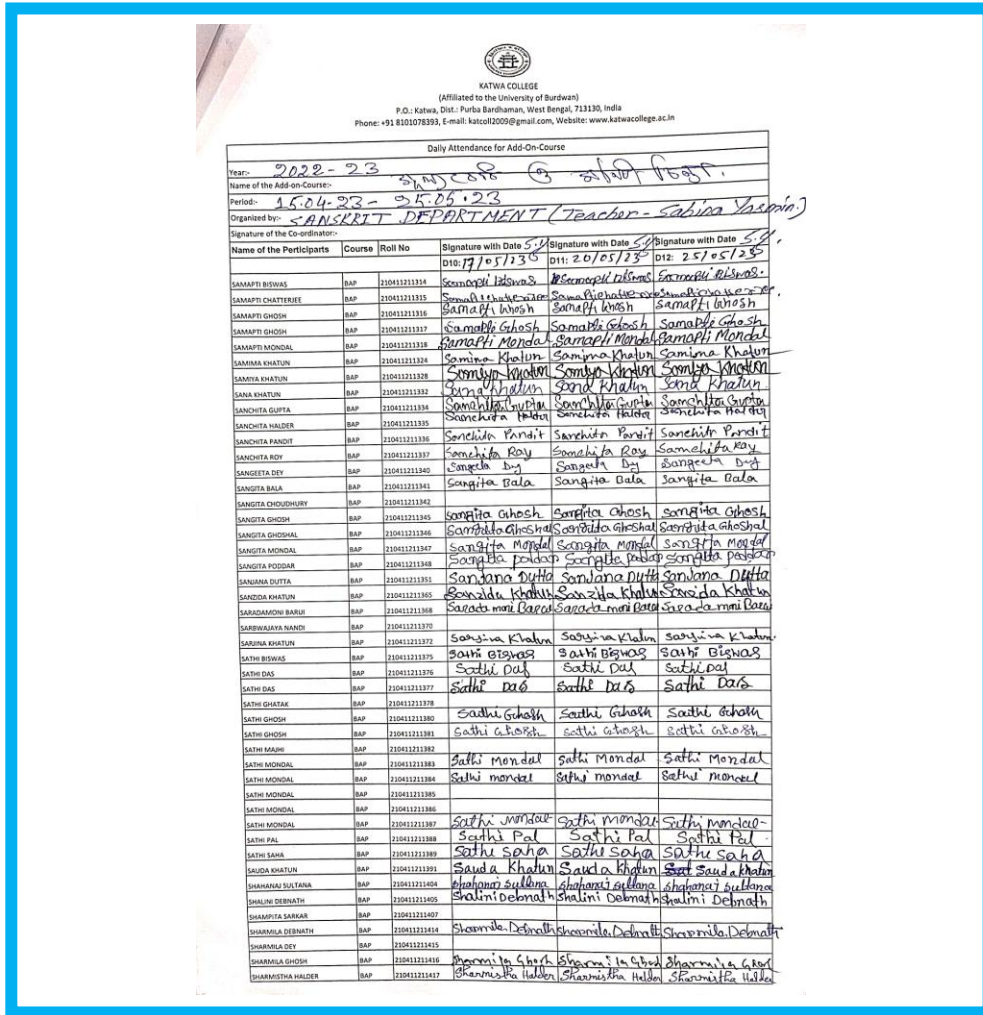 KATWA COLLEGE
(Affiliated to the University of Burdwan)
P.O.: Katwa, Dist.: Purba Bardhaman, West Bengal, 713130, India
Phone: +91 8101078393, E-mail: katcoll2009@gmail.com, Website: www.katwacollege.ac.in
Daily Attendance for Add-On-Course
Year:- 2022-23
Name of the Add-on-Course:- ও
Period:- 15.04.23 - 25.05.23
Organized by:- SANSKRIT DEPARTMENT (Teacher - Sabina Yasmin.)
Signature of the Co-ordinator:-
Name of the Perticipants Course Roll No Signature with Date S.Y Signature with Date S.Y Signature with Date S.Y.
D10: 17/05/23 D11: 20/05/23 D12: 25/05/23
SAMAPTI BISWAS BAP 210411211314 Samapti Biswas Samapti Biswas Samapti Biswas.
SAMAPTI CHATTERJEE BAP 210411211315 Samapti Chatterjee Samapti Chatterjee Samapti Chatterjee.
SAMAPTI GHOSH BAP 210411211316 Samapti Ghosh Samapti Ghosh Samapti Ghosh
SAMAPTI GHOSH BAP 210411211317 Samapti Ghosh Samapti Ghosh Samapti Ghosh
SAMAPTI MONDAL BAP 210411211318 Samapti Mondal Samapti Mondal Samapti Mondal
SAMIMA KHATUN BAP 210411211324 Samima Khatun Samima Khatun Samima Khatun
SAMIYA KHATUN BAP 210411211328 Samiya Khatun Samiya Khatun Samiya Khatun
SANA KHATUN BAP 210411211332 Sana Khatun Sana Khatun Sana Khatun
SANCHITA GUPTA BAP 210411211334 Sanchita Gupta Sanchita Gupta Sanchita Gupta
SANCHITA HALDER BAP 210411211335 Sanchita Halder Sanchita Halder Sanchita Halder
SANCHITA PANDIT BAP 210411211336 Sanchita Pandit Sanchita Pandit Sanchita Pandit
SANCHITA ROY BAP 210411211337 Sanchita Roy Sanchita Roy Sanchita Roy
SANGEETA DEY BAP 210411211340 Sangeeta Dey Sangeeta Dey Sangeeta Dey
SANGITA BALA BAP 210411211341 Sangita Bala Sangita Bala Sangita Bala
SANGITA CHOUDHURY BAP 210411211342
SANGITA GHOSH BAP 210411211345 Sangita Ghosh Sangita Ghosh Sangita Ghosh
SANGITA GHOSHAL BAP 210411211346 Sangita Ghoshal Sangita Ghoshal Sangita Ghoshal
SANGITA MONDAL BAP 210411211347 Sangita Mondal Sangita Mondal Sangita Mondal
SANGITA PODDAR BAP 210411211348 Sangita poddar Sangita poddar Sangita poddar
SANJANA DUTTA BAP 210411211351 Sanjana Dutta Sanjana Dutta Sanjana Dutta
SANZIDA KHATUN BAP 210411211365 Sanzida Khatun Sanzida Khatun Sanzida Khatun
SARADAMONI BARUI BAP 210411211368 Sarada moni Barui Sarada moni Barui Sarada moni Barui
SARBWAJAYA NANDI BAP 210411211370
SARJINA KHATUN BAP 210411211372 Sarjina Khatun Sarjina Khatun Sarjina Khatun.
SATHI BISWAS BAP 210411211375 Sathi Biswas Sathi Biswas Sathi Biswas
SATHI DAS BAP 210411211376 Sathi Das Sathi Das Sathi Das
SATHI DAS BAP 210411211377 Sathi Das Sathi Das Sathi Das
SATHI GHATAK BAP 210411211378
SATHI GHOSH BAP 210411211380 Sathi Ghosh Sathi Ghosh Sathi Ghosh
SATHI GHOSH BAP 210411211381 Sathi Ghosh Sathi Ghosh Sathi Ghosh
SATHI MAJHI BAP 210411211382
SATHI MONDAL BAP 210411211383 Sathi Mondal Sathi Mondal Sathi Mondal
SATHI MONDAL BAP 210411211384 Sathi mondal Sathi mondal Sathi mondal
SATHI MONDAL BAP 210411211385
SATHI MONDAL BAP 210411211386
SATHI MONDAL BAP 210411211387 Sathi mondal Sathi mondal Sathi mondal
SATHI PAL BAP 210411211388 Sathi Pal Sathi Pal Sathi Pal
SATHI SAHA BAP 210411211389 Sathi saha Sathi saha Sathi saha
SAUDA KHATUN BAP 210411211391 Sauda Khatun Sauda Khatun Sauda khatun
SHAHANAJ SULTANA BAP 210411211404 Shahanaj sultana Shahanaj sultana Shahanaj sultana
SHALINI DEBNATH BAP 210411211405 Shalini Debnath Shalini Debnath Shalini Debnath
SHAMPITA SARKAR BAP 210411211407
SHARMILA DEBNATH BAP 210411211414 Sharmila Debnath Sharmila Debnath Sharmila Debnath
SHARMILA DEY BAP 210411211415
SHARMILA GHOSH BAP 210411211416 Sharmila Ghosh Sharmila Ghosh Sharmila Ghosh
SHARMISTHA HALDER BAP 210411211417 Sharmistha Halder Sharmistha Halder Sharmistha Halder